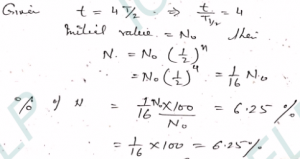 Given t = 4 T/2 ⇒ t/T1/2 = 4
Initial value = No then
N. = No (1/2)^n
= No (1/2)^4 = 1/16 No
% of N = 1/16 N x 100 / No = 6.25 %
= 1/16 x 100 = 6.25 %